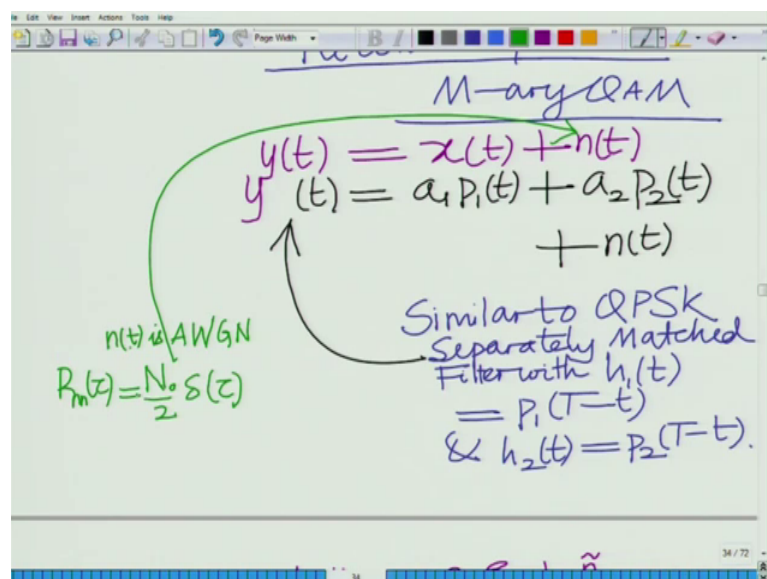 Edit View Insert Actions Tools Help
Page Width
B I
M-ary QAM
y(t) = x(t) + n(t)
y (t) = a₁p₁(t) + a₂p₂(t)
+ n(t)
n(t) is AWGN
Rₙₙ(τ) = N₀/2 δ(τ)
Similar to QPSK
Separately Matched
Filter with h₁(t)
= p₁(T-t)
& h₂(t) = p₂(T-t).
34 / 72
34